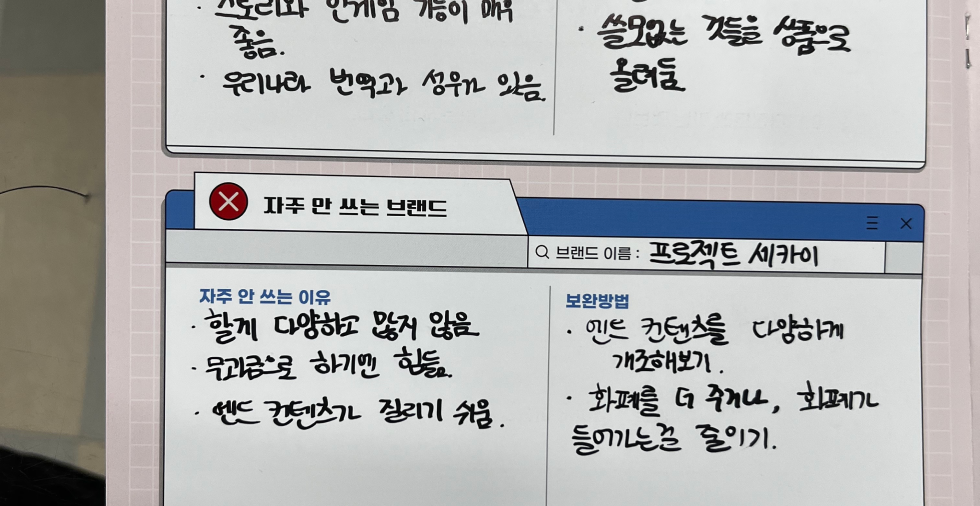 · 스토리와 인게임 기능이 매우
좋음.
· 우리나라 번역과 성우가 있음.
· 쓸모없는 것들을 상품으로
올려둠
자주 안 쓰는 브랜드
브랜드 이름 : 프로젝트 세카이
자주 안 쓰는 이유
· 할게 다양하고 많지 않음
· 무과금으로 하기엔 힘듦.
· 엔드 컨텐츠가 질리기 쉬움.
보완방법
· 엔드 컨텐츠를 다양하게
개조해보기.
· 화폐를 더 주거나, 화폐가
들어가는걸 줄이기.